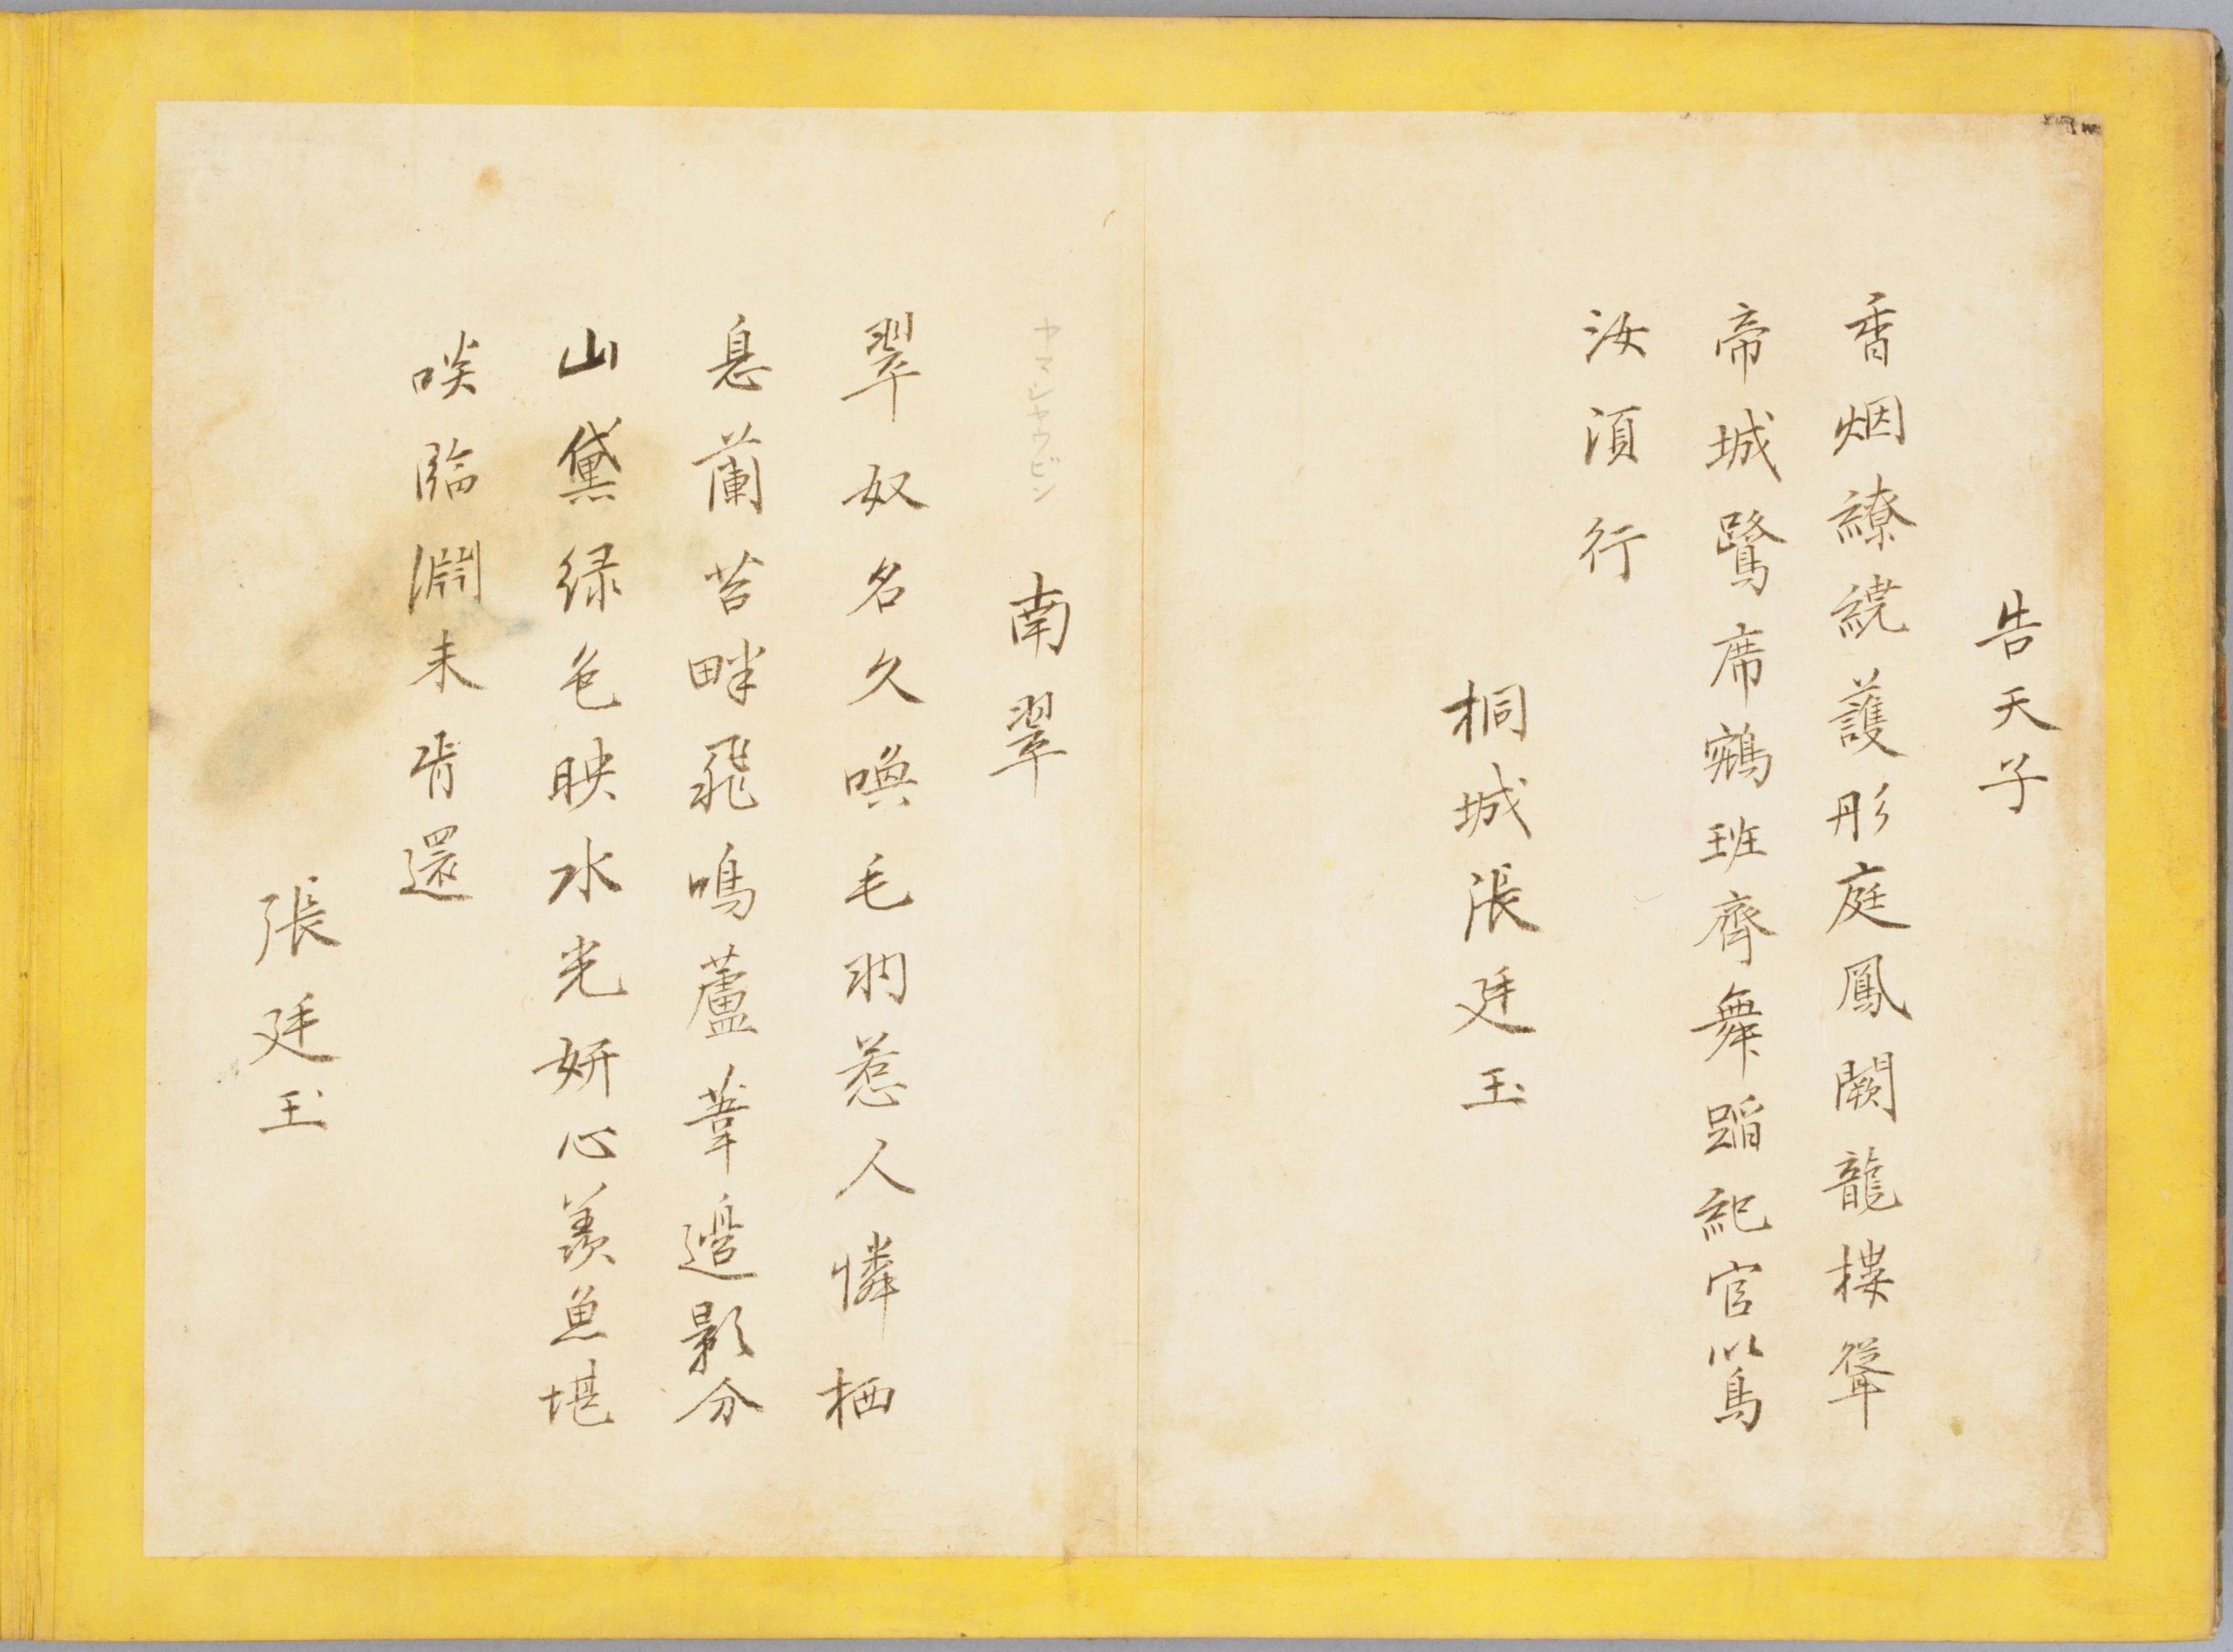 告天子
香烟繚繞護彤庭鳳闕龍樓聳
帝城鷺席鵷班齊舞蹈紀官以鳥
汝湏行
桐城張廷玉
南翠
ヤマシヤウビン
翠奴名久喚毛羽惹人憐栖
息蘭苕畔飛鳴蘆葦邉影分
山黛绿色映水光妍心羨魚堪
啖臨淵未肯還
張廷玉